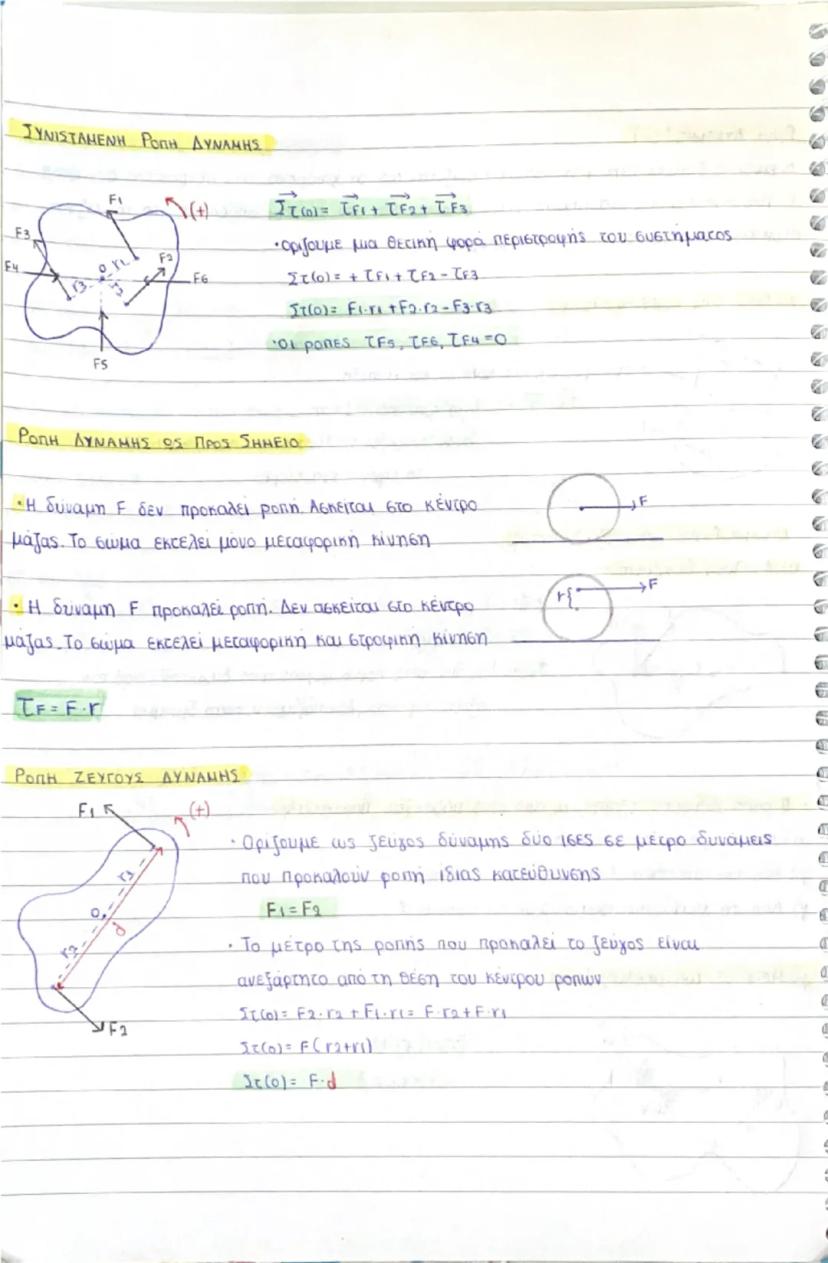 ΣΥΝΙΣΤΑΜΕΝΗ ΡΟΠΗ ΔΥΝΑΜΗΣ
F1
(+)
F3
F4
O
r1
F2
r3
r2
F6
F5
Στ(ο) = τF1 + τF2 + τF3
·ορίζουμε μια θετική φορά περιστροφής του συστήματος
Στ(ο) = + τF1 + τF2 - τF3
Στ(ο) = F1·r1 + F2·r2 - F3·r3
·Οι ροπές τF5, τF6, τF4 = 0
ΡΟΠΗ ΔΥΝΑΜΗΣ ΩΣ ΠΡΟΣ ΣΗΜΕΙΟ
·Η δύναμη F δεν προκαλεί ροπή. Ασκείται στο κέντρο
μάζας. Το σώμα εκτελεί μόνο μεταφορική κίνηση
F
· Η δύναμη F προκαλεί ροπή. Δεν ασκείται στο κέντρο
μάζας. Το σώμα εκτελεί μεταφορική και στροφική κίνηση
r
F
τF = F·r
ΡΟΠΗ ΖΕΥΓΟΥΣ ΔΥΝΑΜΗΣ
F1
(+)
r1
O
d
r2
F2
· Ορίζουμε ως ζεύγος δύναμης δύο ίσες σε μέτρο δυνάμεις
που προκαλούν ροπή ίδιας κατεύθυνσης
F1 = F2
· Το μέτρο της ροπής που προκαλεί το ζεύγος είναι
ανεξάρτητο από τη θέση του κέντρου ροπών
Στ(ο) = F2·r2 + F1·r1 = F·r2 + F·r1
Στ(ο) = F(r2+r1)
Στ(ο) = F·d